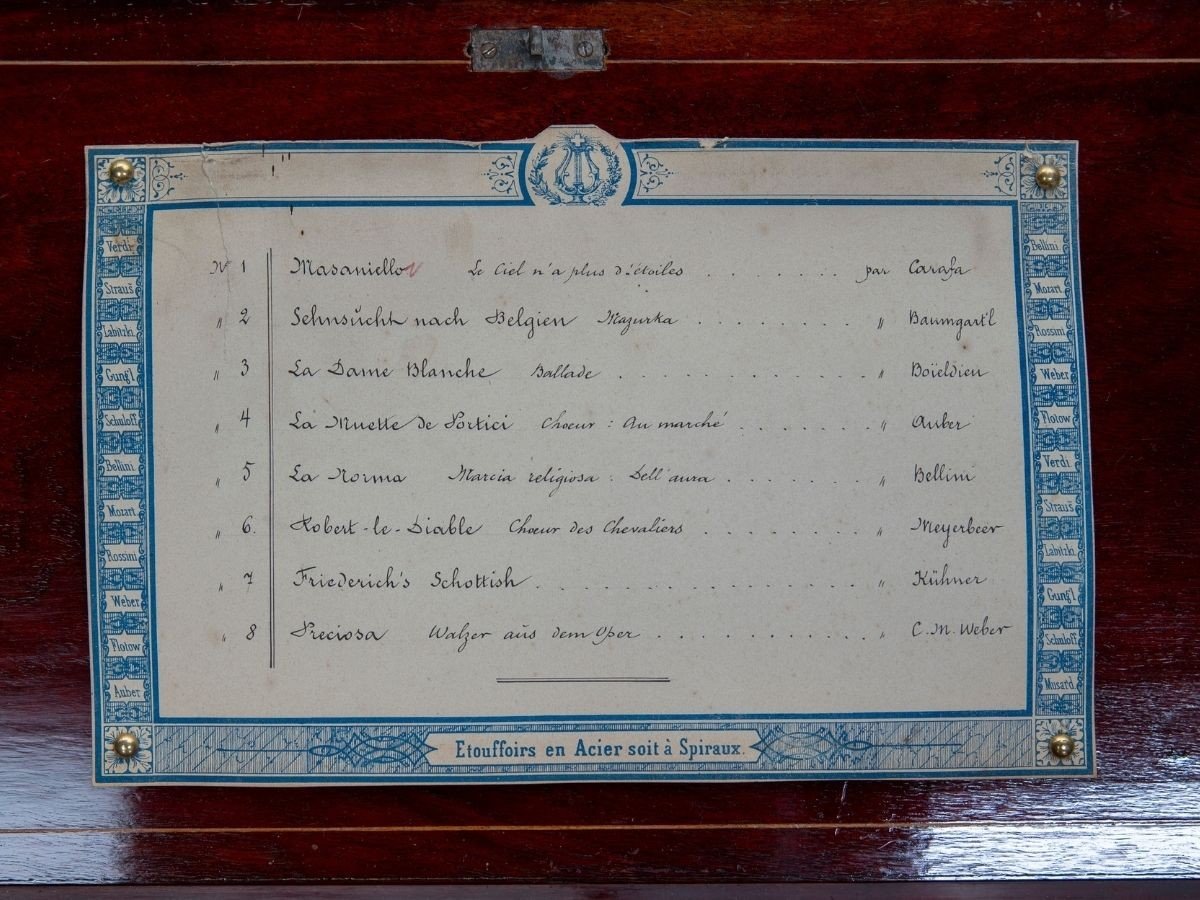 Nº 1 Masaniello Le Ciel n'a plus d'étoiles . . . . . . . . par Carafa
" 2 Sehnsŭcht nach Belgien Mazurka . . . . . . . . " Baumgart'l
" 3 La Dame Blanche Ballade . . . . . . . . . . . . " Boïeldieu
" 4 La Muette de Portici Choeur : Au marché . . . . . . . " Auber
" 5 La Norma Marcia religiosa : Dell'aura . . . . . . . " Bellini
" 6. Robert-le-Diable Choeur des Chevaliers . . . . . . . . " Meyerbeer
" 7 Friederich's Schottish . . . . . . . . . . . . . . . " Kühner
" 8 Preciosa Walzer aŭs dem Oper . . . . . . . . . . " C. M. Weber
Verdi
Straus̄
Labitzki
Gung'l
Schuloff
Bellini
Mozart
Rossini
Weber
Flotow
Auber
Bellini
Mozart
Rossini
Weber
Flotow
Verdi
Straus̄
Labitzki
Gung'l
Schuloff
Musard
Etouffoirs en Acier soit à Spiraux.